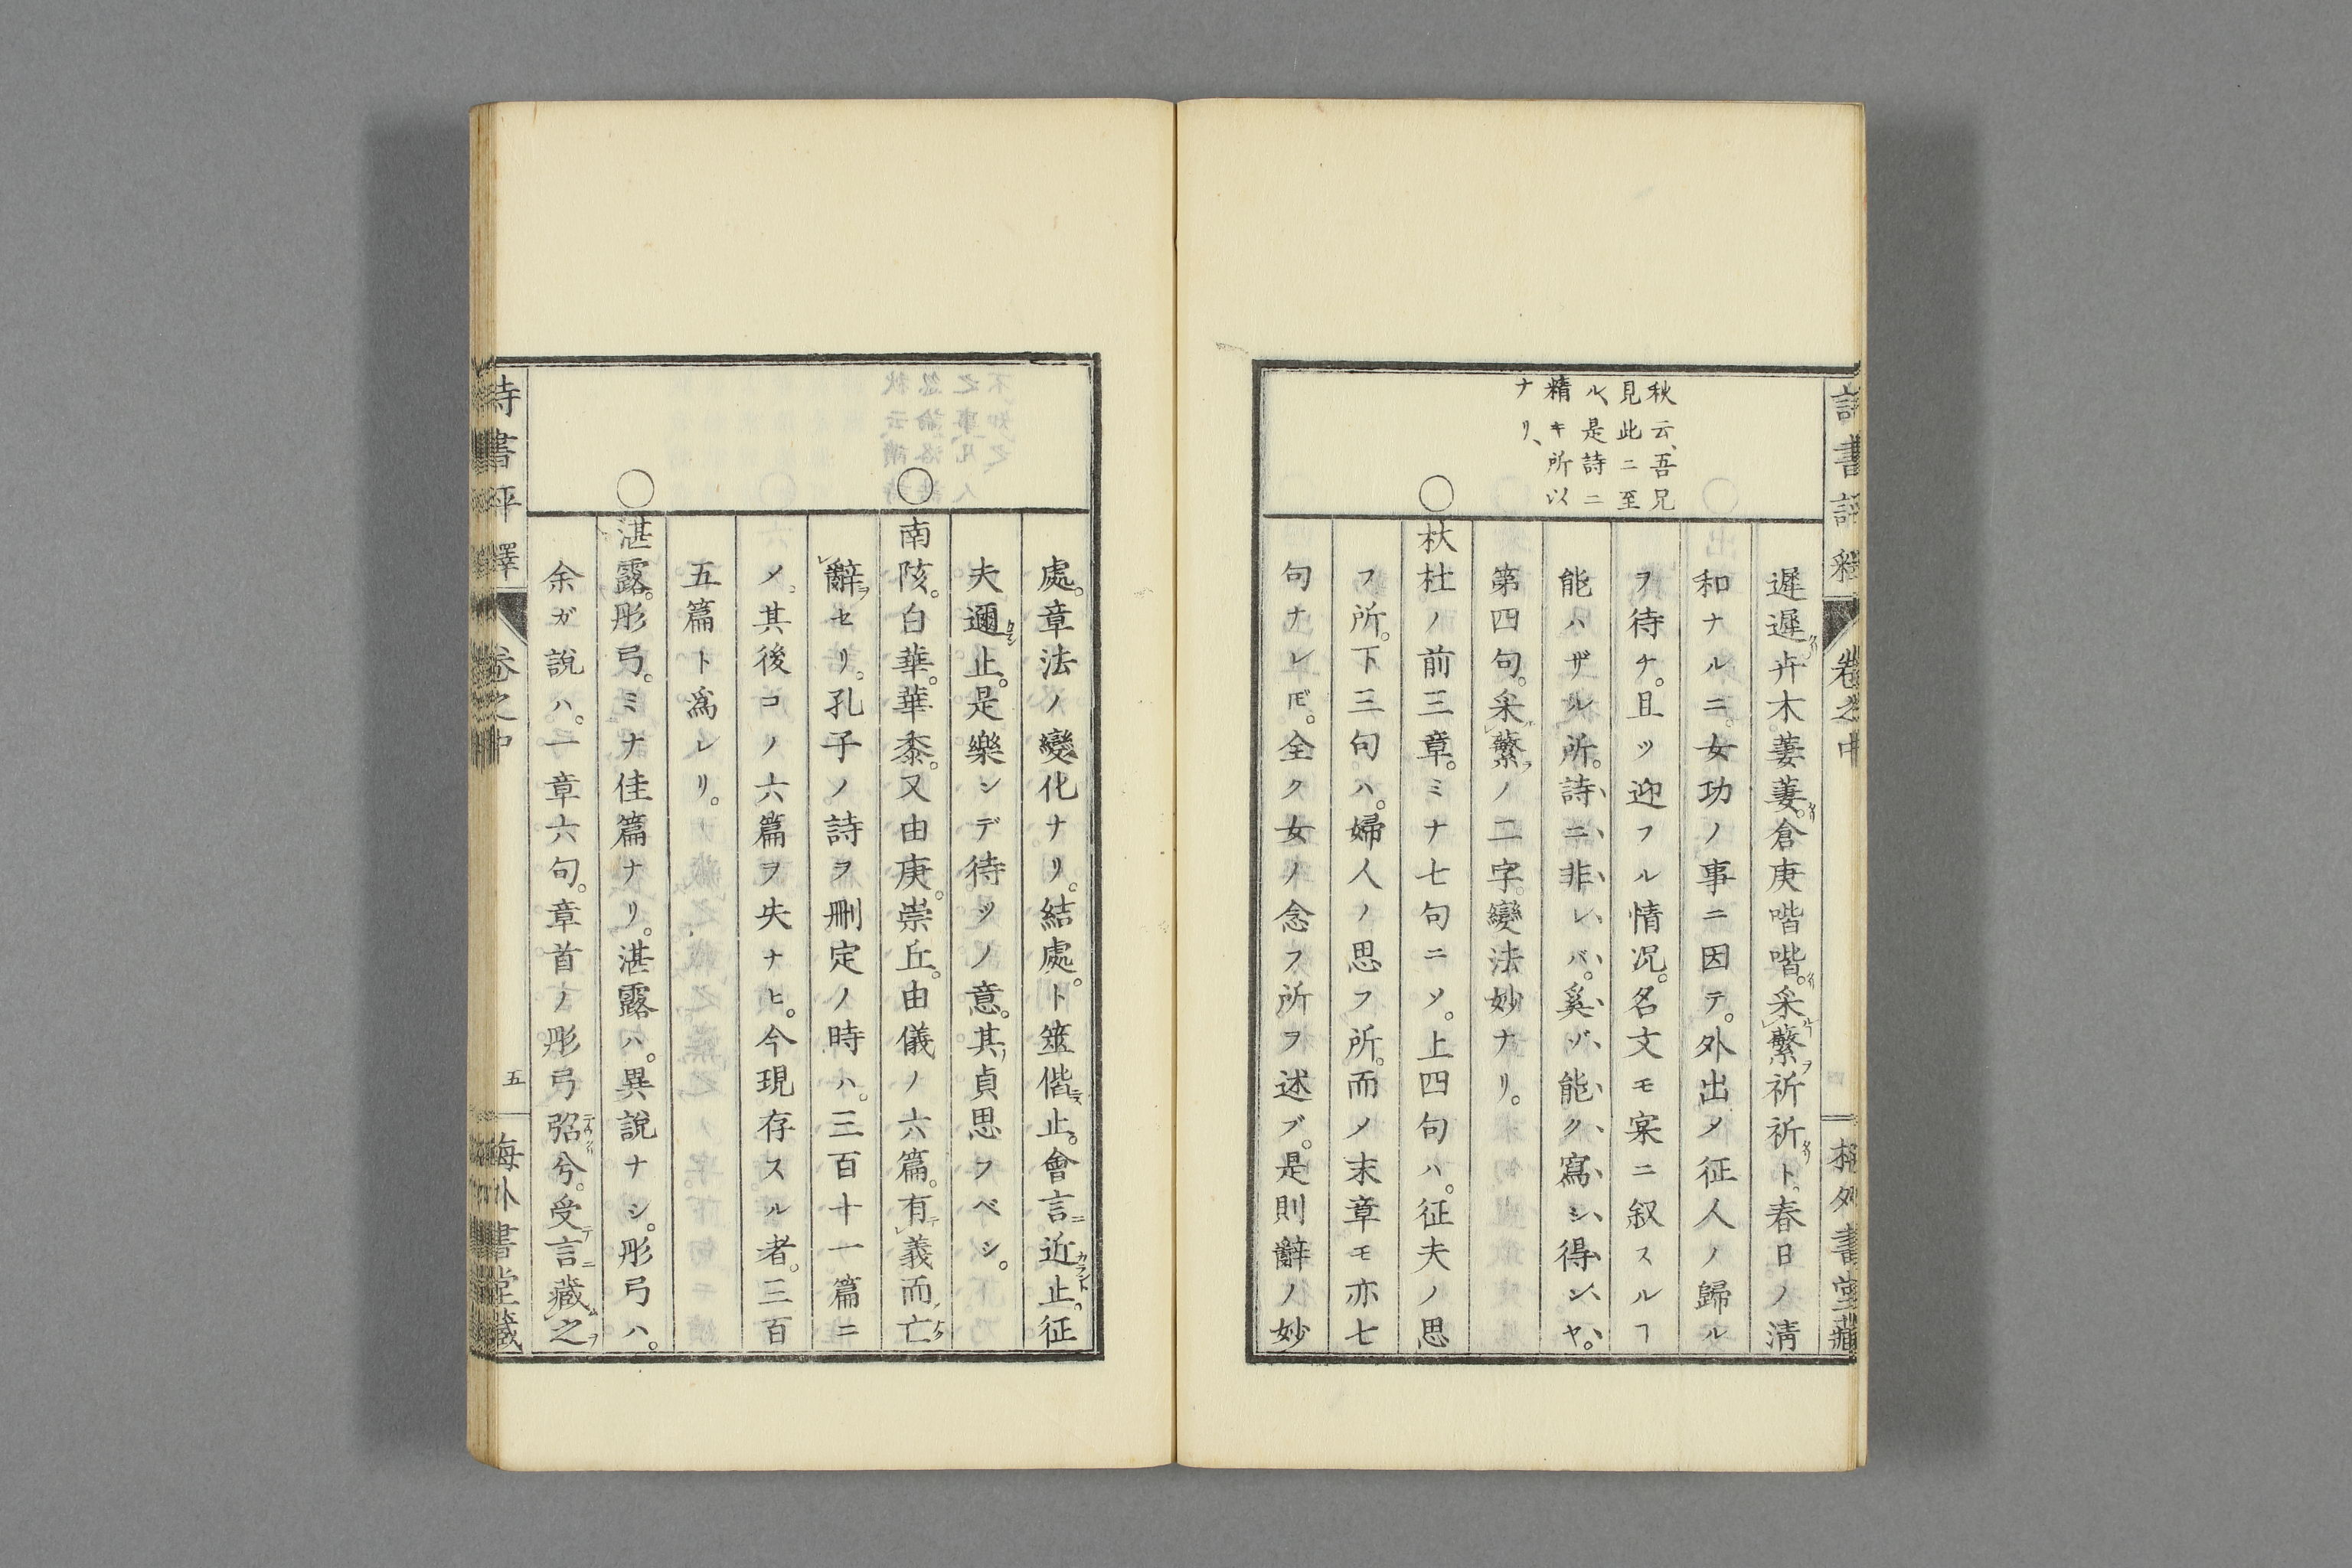 詩書評釋
卷之中
秋云、吾兄
見此ニ至
ル、是詩ニ
精キ所以
ナリ、
遲遲卉木萋萋。倉庚喈喈。采蘩祈祈ト。春日ノ清
和ナルニ。女功ノ事ニ因テ。外出メ征人ノ歸ル
ヲ待チ。且ツ迎フル情況。名文モ寀ニ叙スルヿ
能ハザル所。詩ニ非レバ。奚ゾ能ク寫シ得ンヤ。
第四句。采蘩ノ二字。變法妙ナリ。
○杕杜ノ前三章。ミナ七句ニソ。上四句ハ。征夫ノ思
フ所。下三句ハ。婦人ノ思フ所。而メ末章モ亦七
句ナレ𪜈。全ク女ノ念フ所ヲ述ブ。是則辭ノ妙
處。章法ノ變化ナリ。結處。ト筮偕止。會言近止。征
夫邇止。是樂シデ待ツノ意。其貞思フベシ。
○南陔。白華。華黍。又由庚。崇丘。由儀ノ六篇。有義而亡
辭セリ。孔子ノ詩ヲ刪定ノ時ハ。三百十一篇ニ
メ。其後コノ六篇ヲ失ナヒ。今現存スル者。三百
五篇ト爲レリ。
○湛露。彤弓。ミナ佳篇ナリ。湛露ハ。異說ナシ。彤弓ハ。
余ガ說ハ。一章六句。章首ノ彤弓弨兮。受言藏之
詩書評釋
卷之中
五